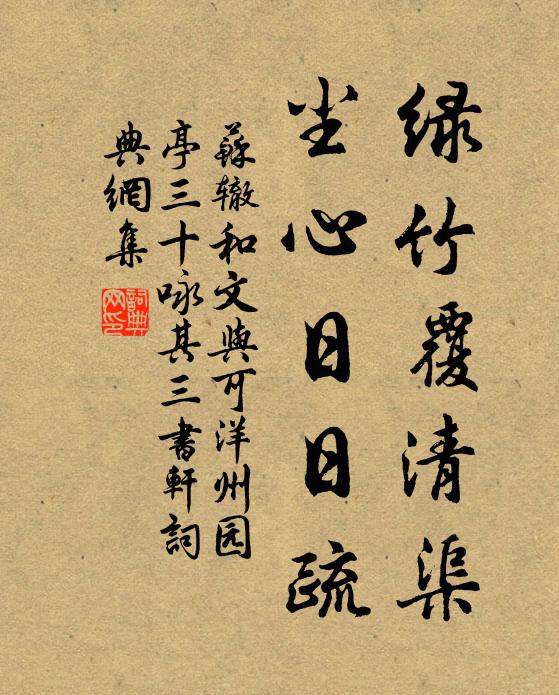 绿竹覆清渠
尘心日日疏
蘇辙和文與可洋州园
亭三十咏其三書軒詞
典網集
詞典网印